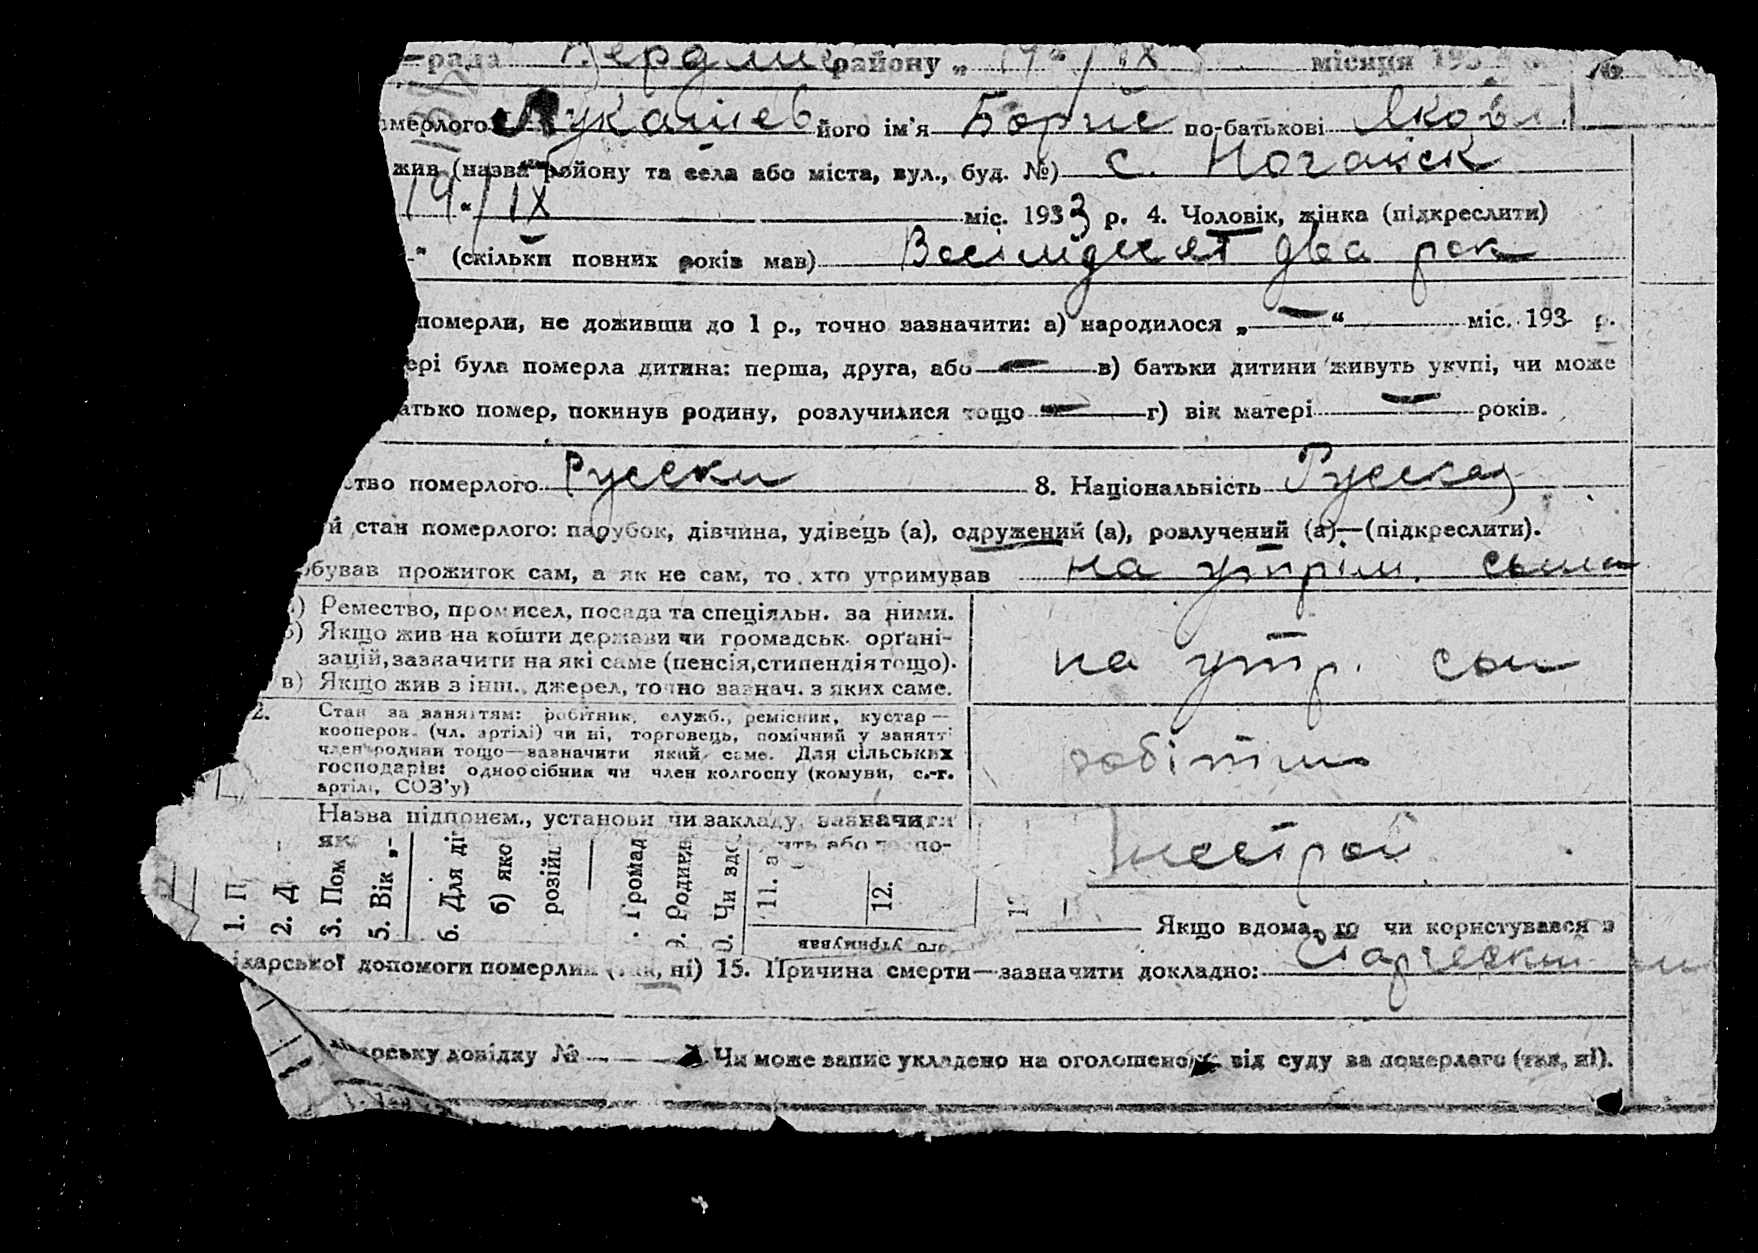 рада Бердянс району „ 14 "/IX місяця 193 №
мерлого Лукашев його ім'я Борис по-батькові Яковл.
жив (назва району та села або міста, вул., буд. №) с. Ногайск
14 "/IX міс. 1933 р. 4. Чоловік, жінка (підкреслити)
" (скільки повних років мав) Восімдесят два рок
померли, не доживши до 1 р., точно зазначити: а) народилося „ — " міс. 193 р.
ері була померла дитина: перша, друга, або — в) батьки дитини живуть укупі, чи може
атько помер, покинув родину, розлучилися тощо — г) вік матері — років.
ство померлого Русски 8. Національність Русская
й стан померлого: парубок, дівчина, удівець (а), одружений (а), розлучений (а)—(підкреслити).
обував прожиток сам, а як не сам, то хто утримував на утрим. сына
) Ремество, промисел, посада та спеціяльн. за ними.
б) Якщо жив на кошти держави чи громадськ. орґані-
зацій, зазначити на які саме (пенсія, стипендія тощо).
в) Якщо жив з інш., джерел, точно зазнач. з яких саме.
на утр. сын
2. Стан за заняттям: робітник, служб., ремісник, кустар—
кооперов. (чл. артілі) чи ні, торговець, помічний у занятті
член родини тощо—зазначити який саме. Для сільських
господарів: одноосібник чи член колгоспу (комуни, с.-г.
артілі, СОЗ'у)
робітник
Назва підприєм., установи чи закладу, зазначити
як
ить або госпо-
1. П
2. Д
3. Пом
5. Вік „-
6. Для ді
б) яко
розій
Громад
9. Родин
0. Чи здо
11. а
12.
ого утримував
Якщо вдома, то чи користувався з
ікарської допомоги померлий (так, ні) 15. Причина смерти—зазначити докладно: Старческий
лікарську довідку № — Чи може запис укладено на оголошено від суду за померлого (так, ні).